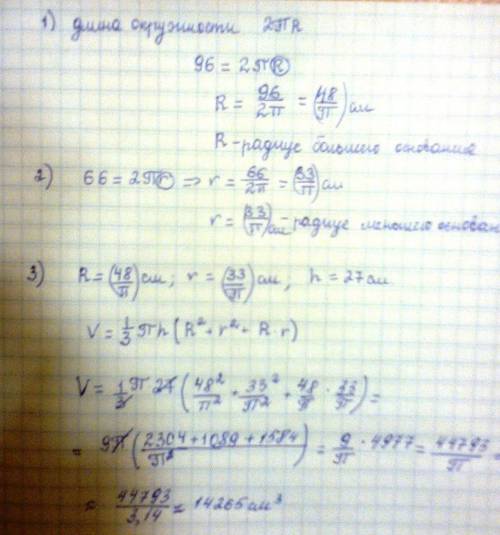 1) длина окружности 2πR
96 = 2πR
R = 96/2π = (48/π) см
R - радиус большего основания
2) 66 = 2πr ⇒ r = 66/2π = (33/π) см
r = (33/π) см - радиус меньшего основан
3) R = (48/π) см; r = (33/π) см; h = 27 см
V = 1/3 πh (R² + r² + R·r)
V = 1/3 π 27 (48²/π² + 33²/π² + 48/π · 33/π) =
= 9π (2304 + 1089 + 1584/π²) = 9/π · 4977 = 44793/π =
≈ 44793/3,14 = 14265 см³